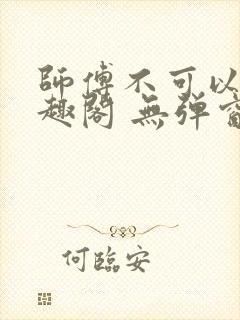 師傅不可以
趣閣 無彈
何臨安